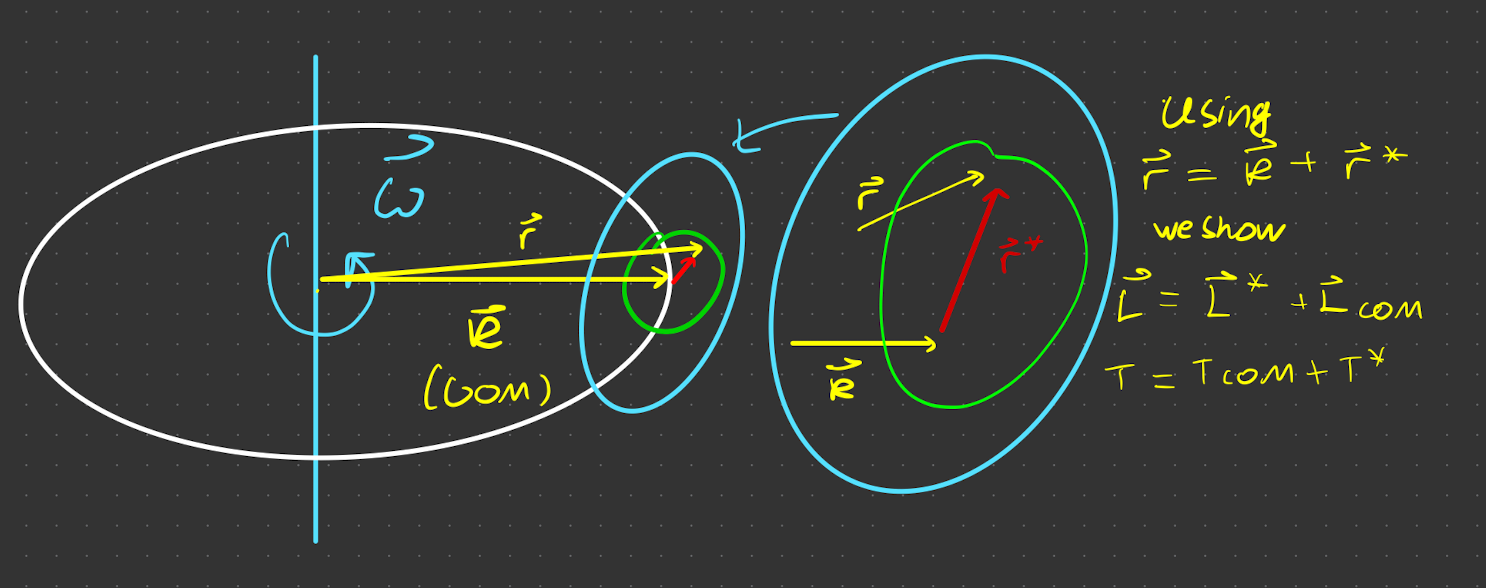 ω⃗
r⃗
R⃗
(COM)
r⃗
r⃗*
R⃗
Using
r⃗ = R⃗ + r⃗*
we show
L⃗ = L⃗* + L⃗ COM
T = T COM + T*